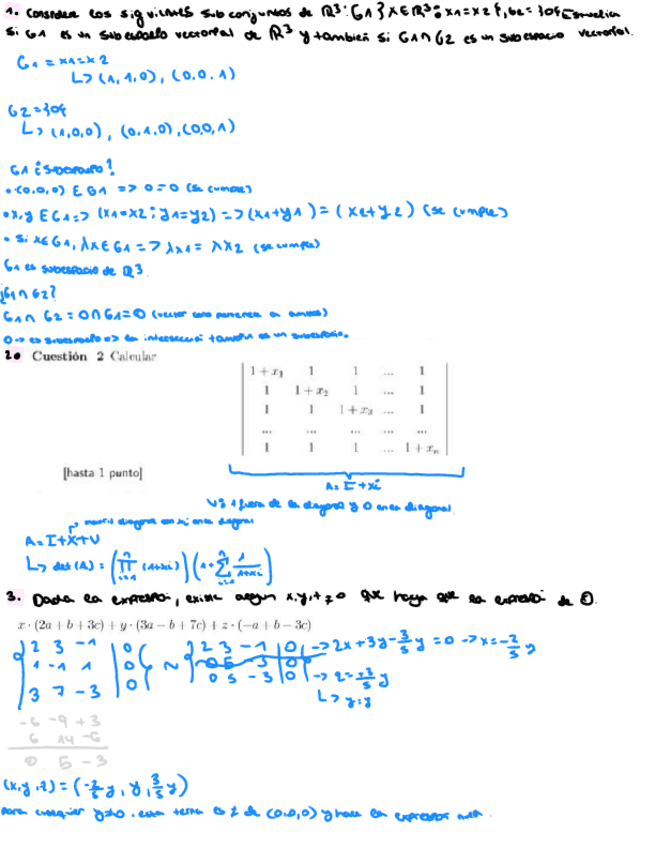 1. Considera los siguientes subconjuntos de R³: G1 } x∈R³: x1=x2 {, G2 = }0{ Estudia
si G1 es un subespacio vectorial de R³ y también si G1∩G2 es un subespacio vectorial.
G1 = x1=x2
↳ (1,1,0), (0,0,1)
G2=}0{
↳ (1,0,0), (0,1,0), (0,0,1)
G1 ¿Subespacio?
• (0,0,0) ∈ G1 => 0=0 (se cumple)
• x,y ∈ G1 => (x1=x2; y1=y2) => (x1+y1) = (x2+y2) (se cumple)
• Si x∈G1, λx∈G1 => λx1 = λx2 (se cumple)
G1 es subespacio de R³.
¿G1∩G2?
G1∩G2 = 0∩G1=0 (vector cero pertenece a ambos)
0 -> es subespacio => la intersección también es un subespacio.
2. Cuestión 2 Calcular
1+x₁ 1 1 ... 1
1 1+x₂ 1 ... 1
1 1 1+x₃ ... 1
... ... ... ... ...
1 1 1 ... 1+xₙ
[hasta 1 punto]
A = I + xi
1 fuera de la diagonal y 0 en la diagonal.
matriz diagonal con xi en la diagonal
A=I+X+U
↳ det(A) = (∏ i=1 n (1+xi)) (1+ ∑ i=1 n 1/1+xi)
3. Dada la expresión, existe algún x,y,z ≠ 0 que haga que la expresión de 0.
x · (2a + b + 3c) + y · (3a − b + 7c) + z · (−a + b − 3c)
2 3 -1 | 0 2 3 -1 | 0 -> 2x+3y-3/5y=0 -> x=-2/5 y
1 -1 1 | 0 ~ 0 5 -3 | 0
3 7 -3 | 0 0 5 -3 | 0 -> z = 3/5 y
↳ y=y
-6 -9 +3
6 14 -6
0 5 -3
(x,y,z) = (-2/5 y, y, 3/5 y)
para cualquier y≠0, esta terna es ≠ de (0,0,0) y hace la expresión nula.